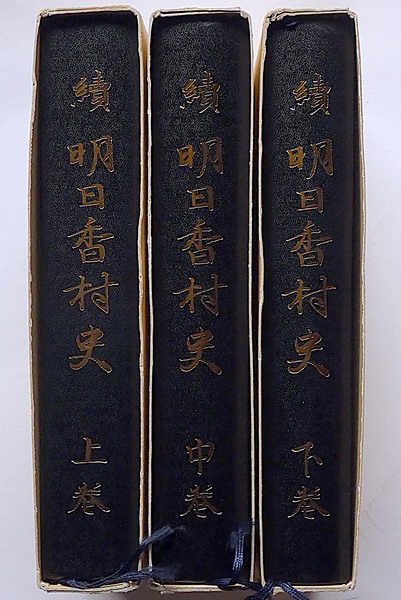 續 明日香村史 上巻
續 明日香村史 中巻
續 明日香村史 下巻